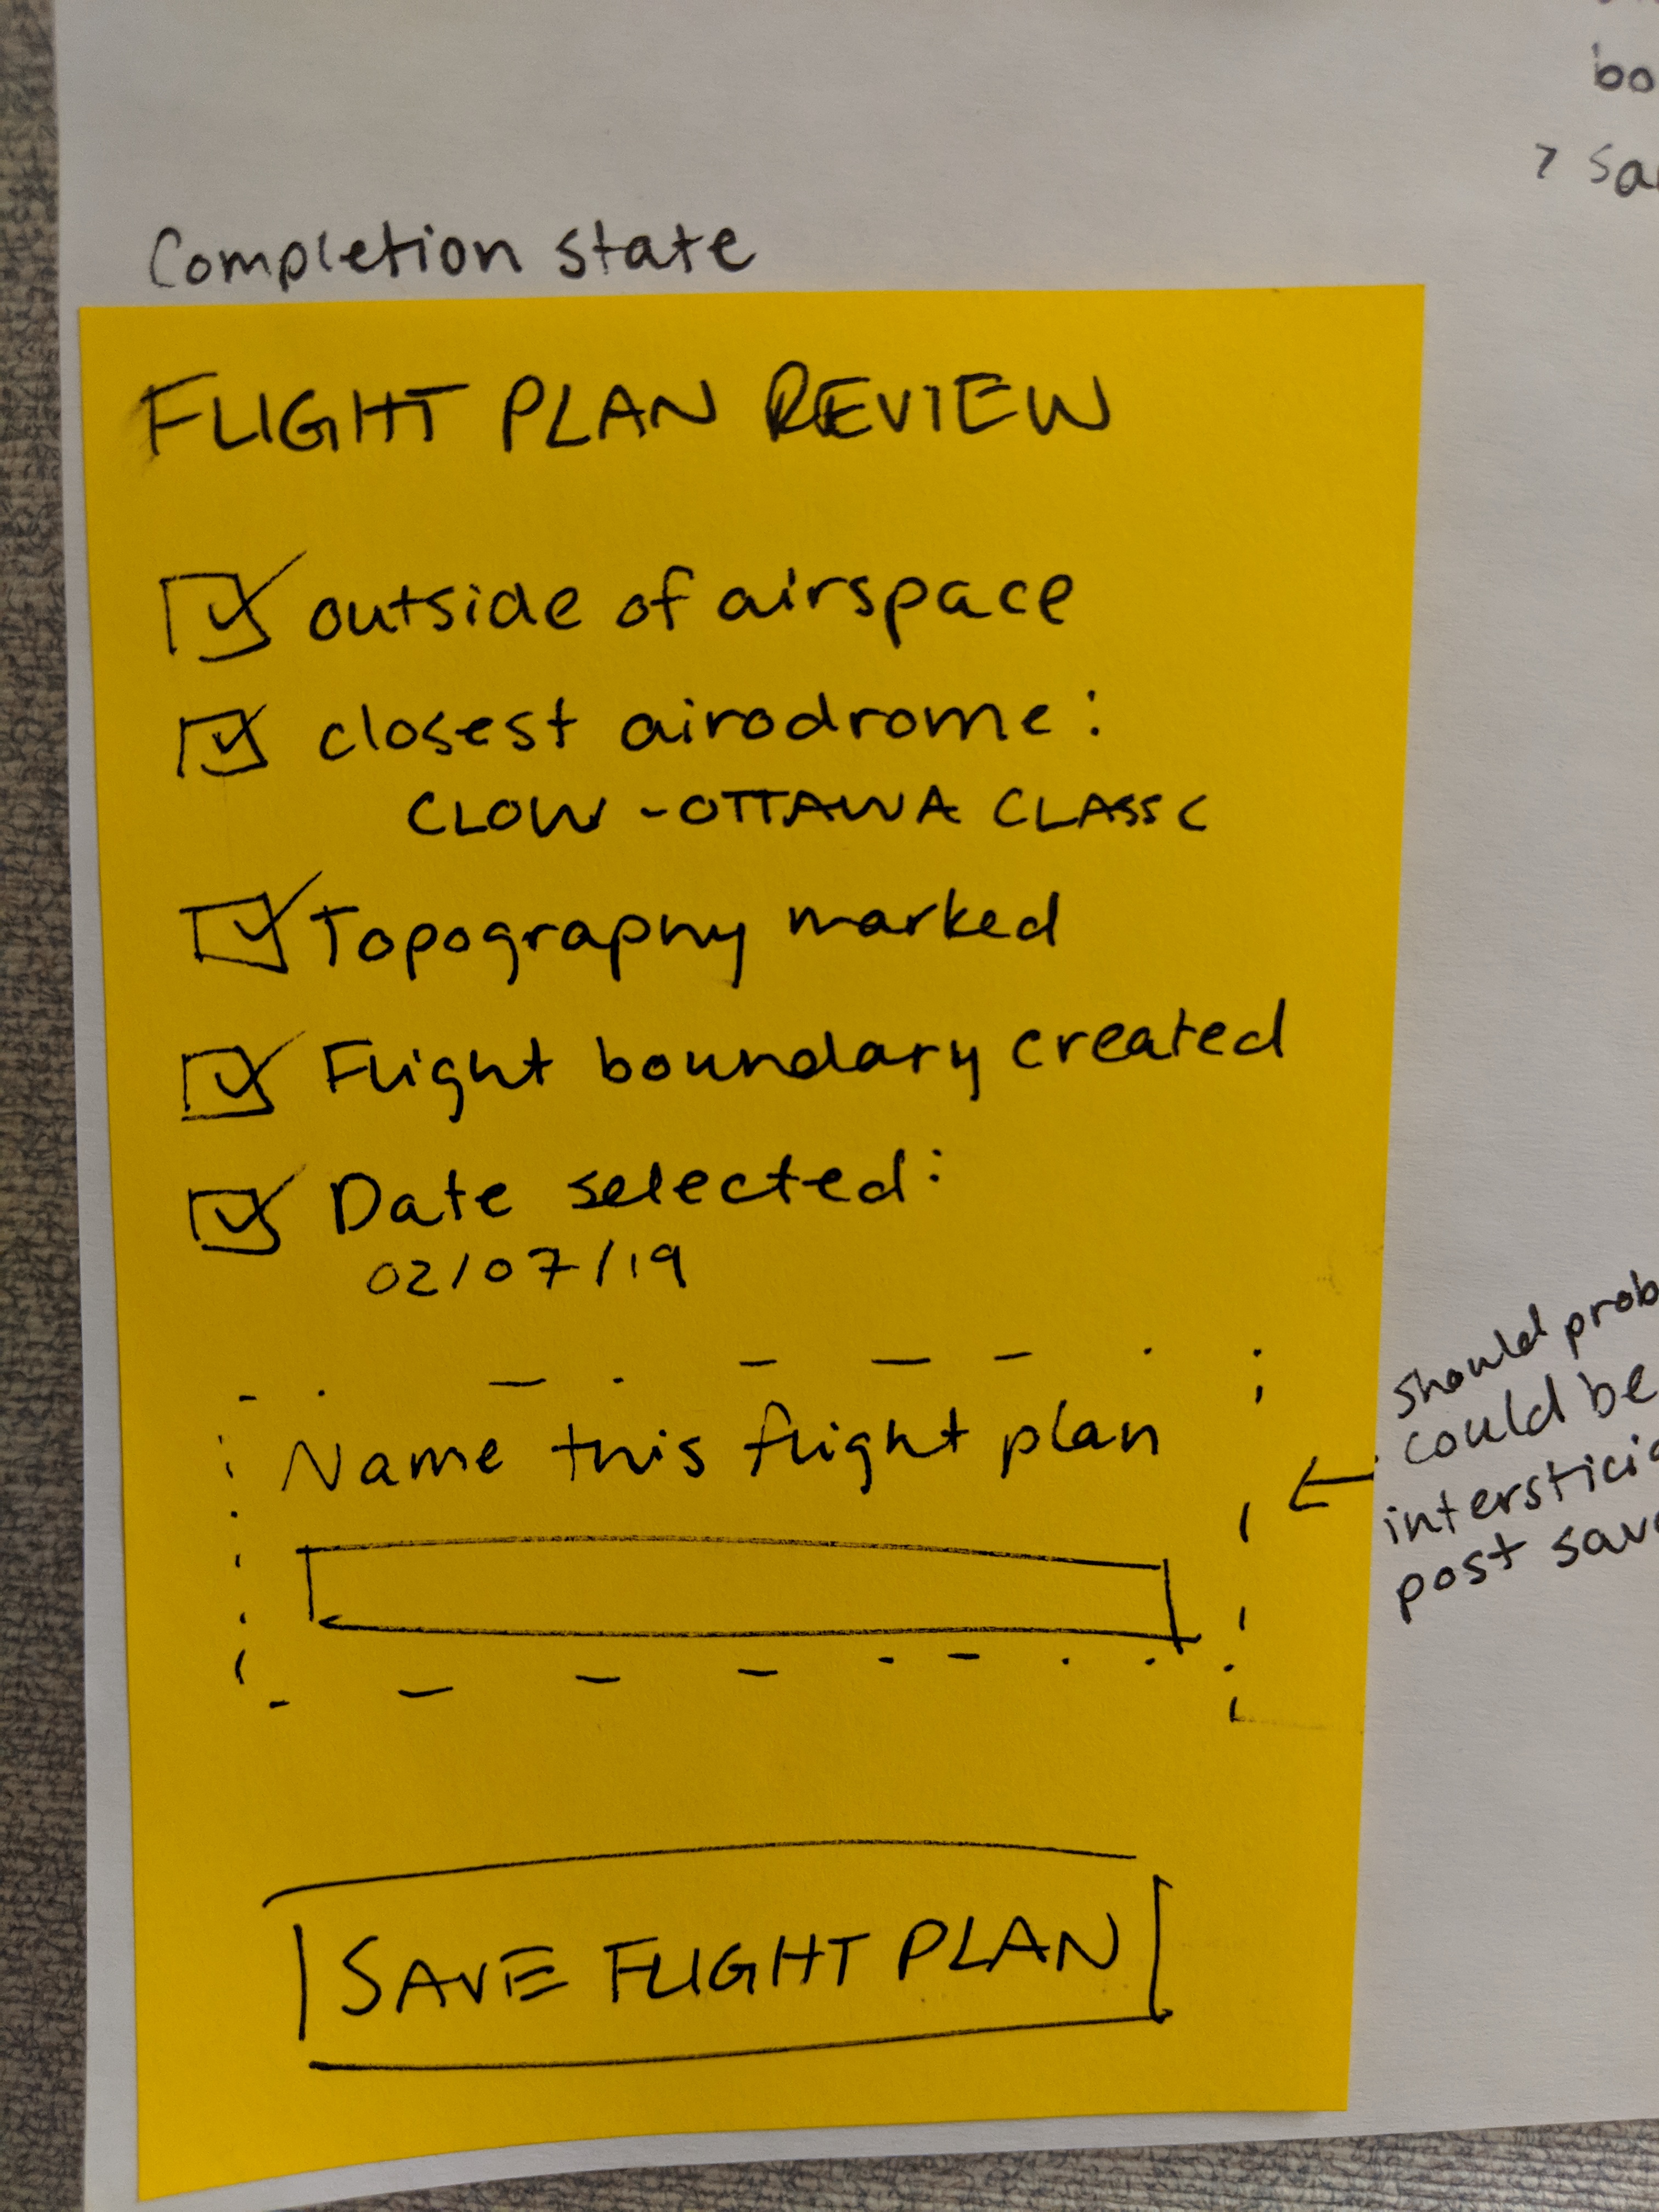 bo
? sa
Completion state
FLIGHT PLAN REVIEW
outside of airspace
closest airodrome:
CLOW - OTTAWA CLASS C
Topography marked
Flight boundary created
Date selected:
02/07/19
Name this flight plan
should prob
could be
intersticia
post save
SAVE FLIGHT PLAN